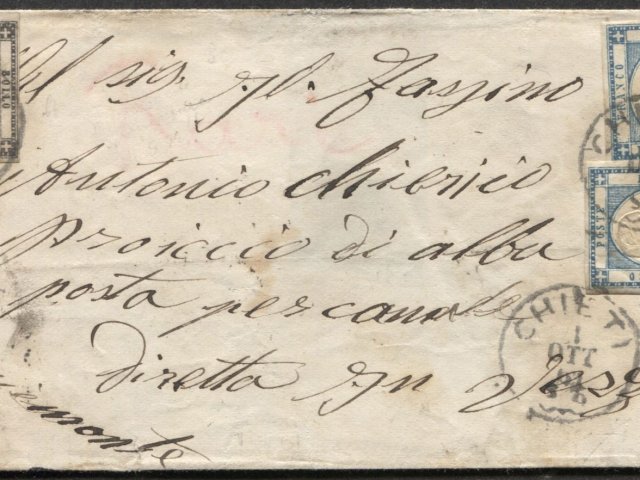 Al sig. Gl. Fassino
Antonio Chierico
Proiccio di alba
posta per canale
diretta In Vezza
Piemonte
BOLLO
FRANCO
POSTE
CHIETI
1
OTT